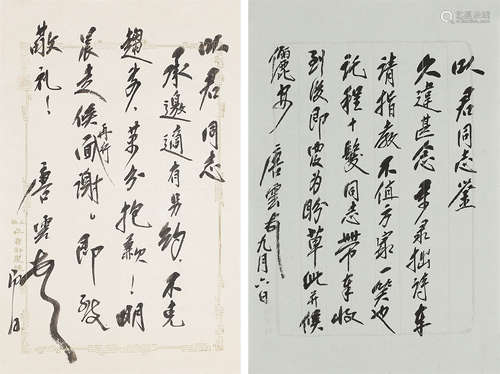 以君同志
承邀适有另约不克
趋步万分抱歉！明
晨走候再行面谢。即致
敬礼！
唐云
即日
以君同志鉴
久违甚念录拙诗奉
请指教不值方家一笑也
托程十髮同志带奉收
到后即覆为盼草此并候
俪安
唐雲
九月六日